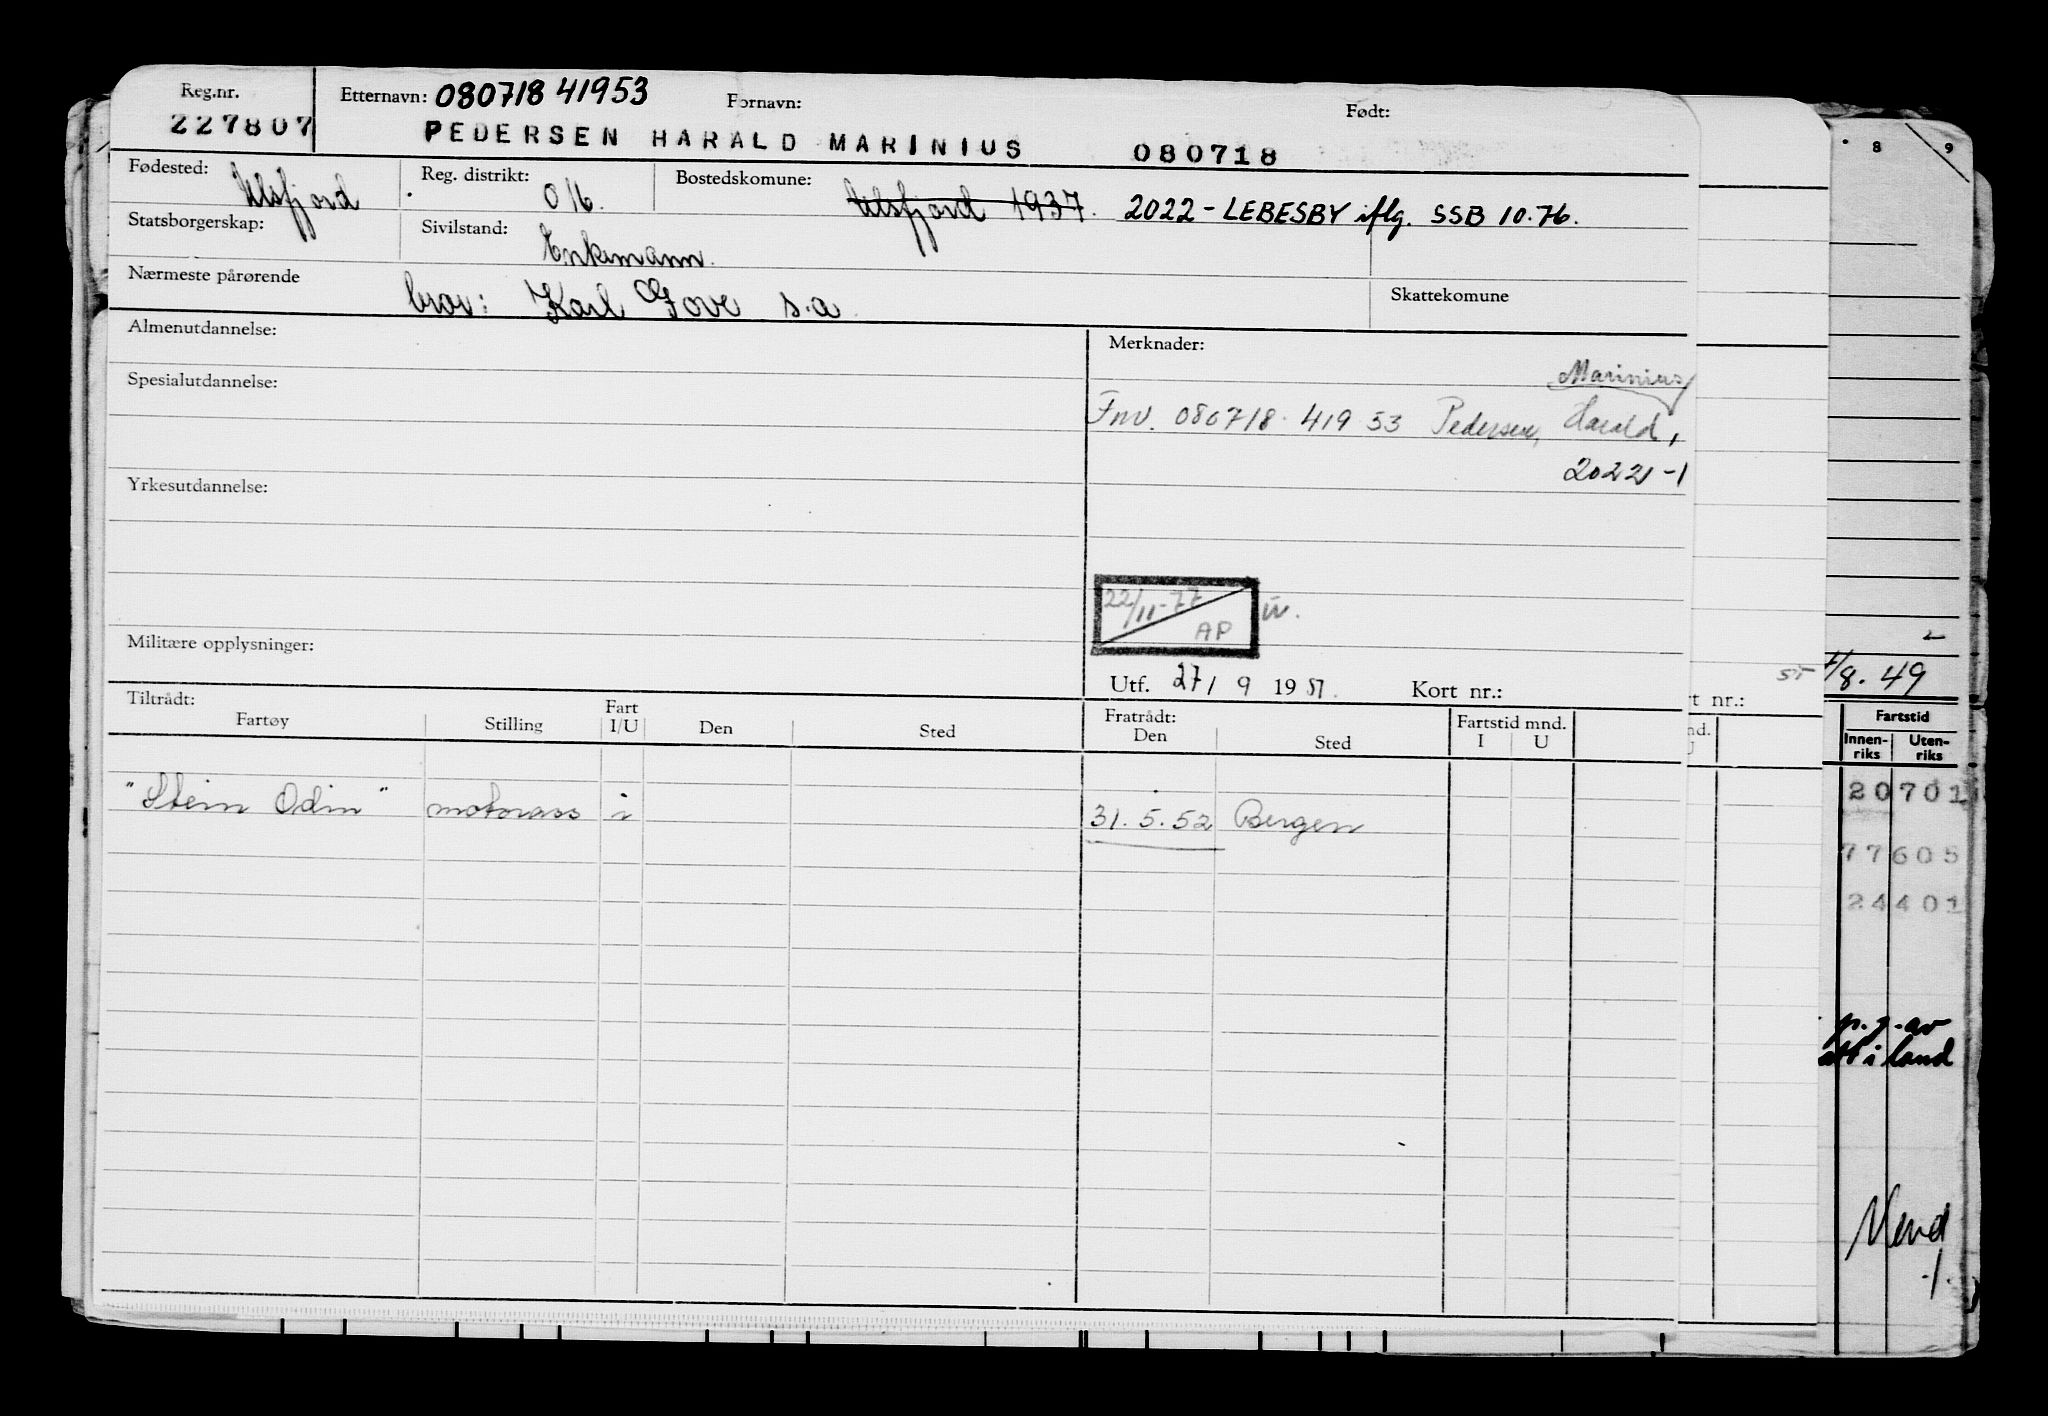 Reg.nr. Etternavn: 080718 41953 Fornavn: Født:
227807 PEDERSEN HARALD MARINIUS 080718
Fødested: Ulsfjord Reg. distrikt: Bostedskomune: Ulsfjord 1937. 2022 - LEBESBY iflg. SSB 10.76.
Statsborgerskap: Sivilstand: Enkemann.
Nærmeste pårørende bror: Karl Tove s.a. Skattekomune
Almenutdannelse: Merknader:
Marinius
Spesialutdannelse:
Fnr. 080718. 419 53 Pedersen, Harald,
2022-1
Yrkesutdannelse:
22/11-77
AP
Militære opplysninger:
Utf. 27/ 9 1951. Kort nr.:
Tiltrådt: Fratrådt:
Fartøy Stilling Fart I/U Den Sted Den Sted Fartstid mnd. I U
"Stein Odin" motorass i 31.5.52 Bergen
8 9
/8.49
t nr.:
nd.
Fartstid
Innen-riks Uten-riks
20701
77605
24401
p.g.av
att i land
Mend